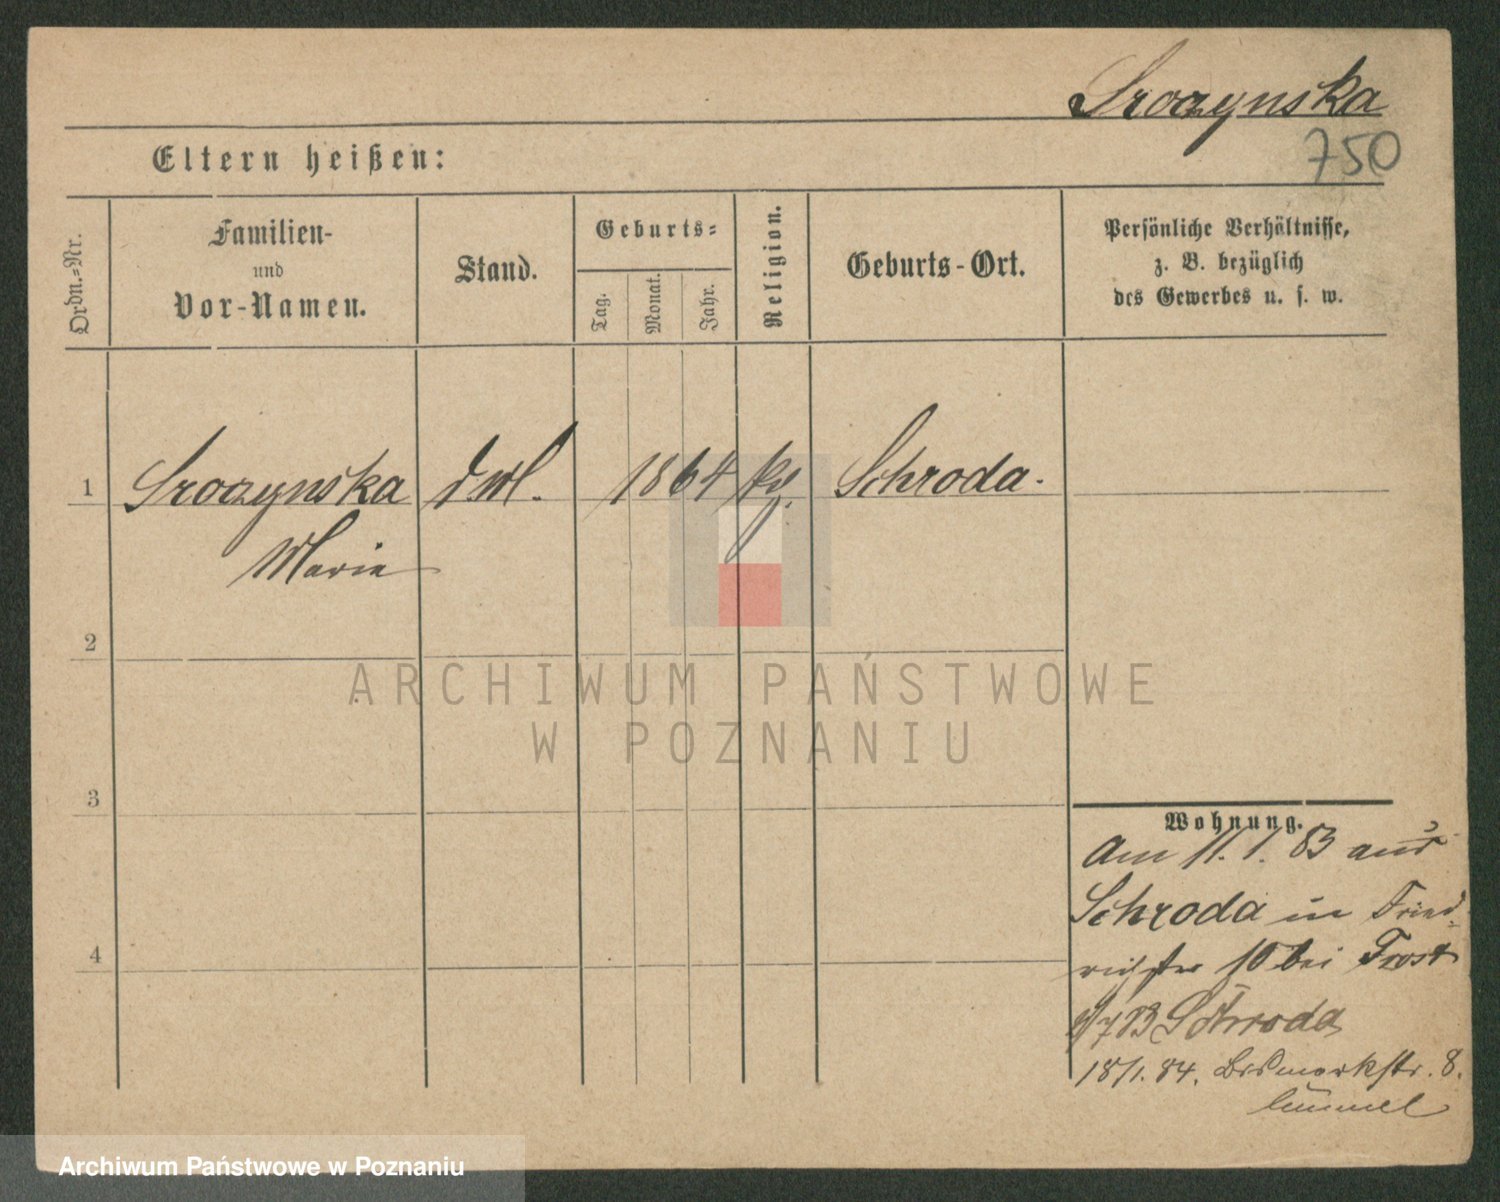 Sroczynska
750
Eltern heißen:
Ordn.-Nr.
Familien-
und
Vor-Namen.
Stand.
Geburts-
Tag.
Monat.
Jahr.
Religion.
Geburts-Ort.
Persönliche Verhältnisse,
z. B. bezüglich
des Gewerbes u. s. w.
1
Sroczynska
Marie
1864
Schroda.
2
3
4
Wohnung.
Am 11. 1. 83 aus
Schroda in Fried-
richstr 10 bei Frost
7 83 Schroda
18/1. 84. Bismarkstr. 8.
ARCHIWUM PAŃSTWOWE
W POZNANIU
Archiwum Państwowe w Poznaniu